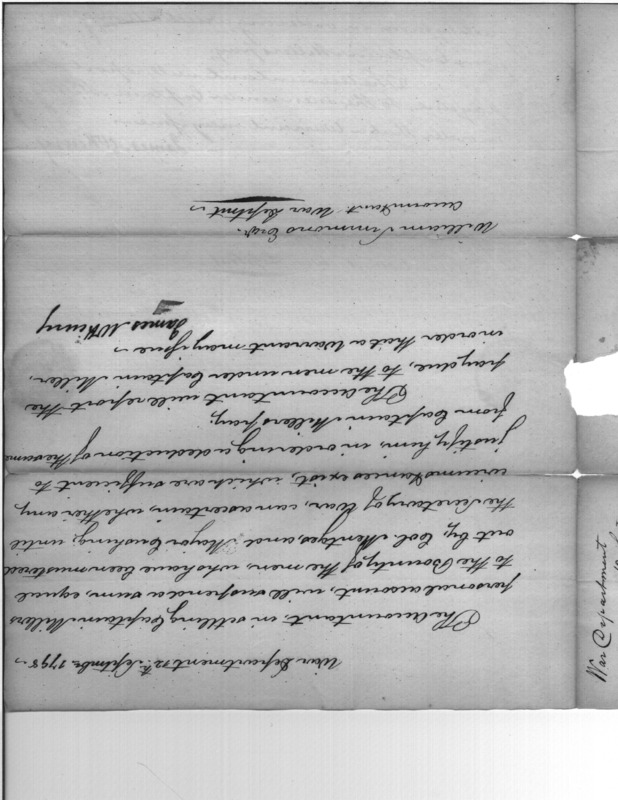 War Department 12th September 1798
The Accountant in settling Captain Millers
personal account, will suspend a sum, equal
to the Bounty of the men, who have been mustered
out by, Col. Mentges, and Major Cushing, until
the Secretary of War, can ascertain, whether any
circumstances exist, which are sufficient to
justify him in ordering a deduction of the same
from Captain Millers pay.
The Accountant will report the
pay due, to the men under Captain Miller,
in order that a Warrant may issue
James McHenry
William Simmons Esqr.
Accountant War Deptmt
War Department